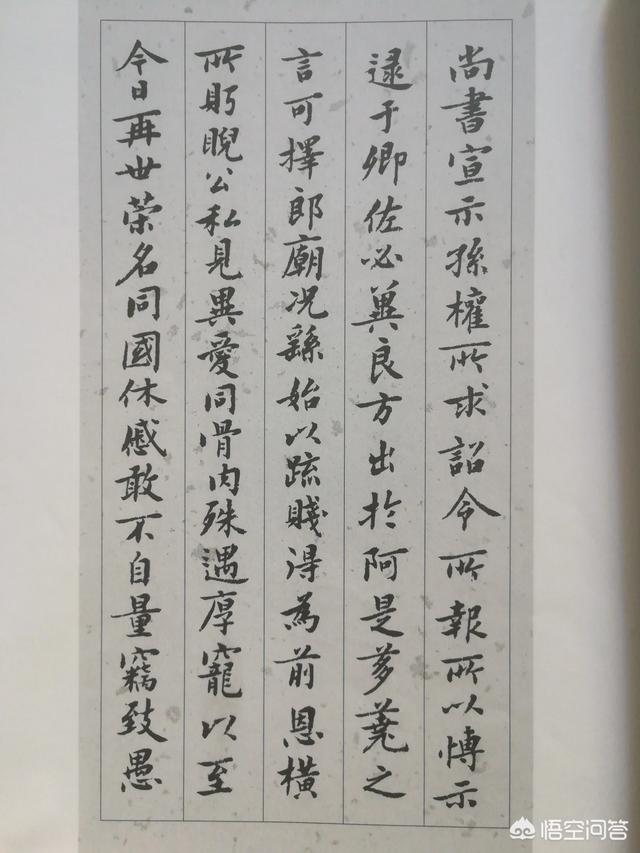 尚書宣示孫權所求詔令所報所以博示
逮于卿佐必冀良方出於阿是芻蕘之
言可擇郎廟況繇始以疏賤得為前恩橫
所眄睨公私見異愛同骨肉殊遇厚寵以至
今日再世荣名同國休慼敢不自量竊致愚
悟空问答